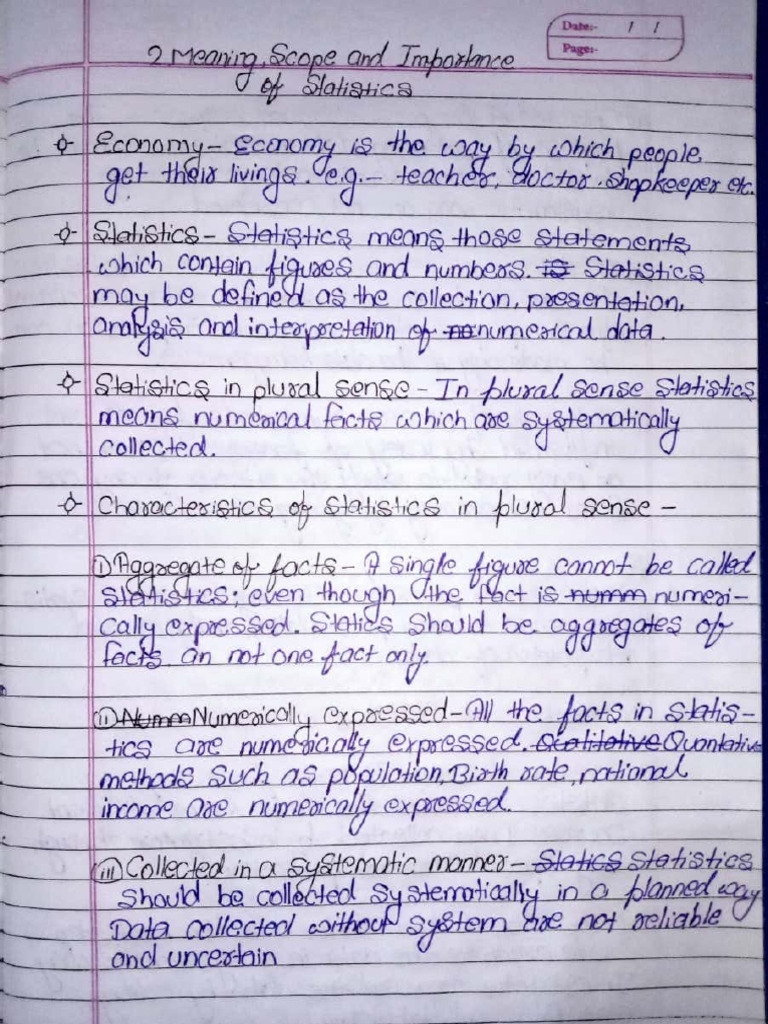 Date:- / /
Page:-
2 Meaning, Scope and Importance
of Statistics
Economy- Economy is the way by which people
get their livings. e.g.- teacher, doctor. shopkeeper etc.
Statistics- Statistics means those statements
which contain figures and numbers. is Statistics
may be defined as the collection, presentation,
analysis and interpretation of na numerical data.
Statistics in plural sense - In plural sense statistics
means numerical facts which are systematically
collected.
Characteristics of statistics in plural sense -
i) Aggregate of facts - A single figure cannot be called
statistics; even though the fact is numm numeri-
cally expressed. Statics should be aggregates of
facts. an not one fact only.
ii) Numm Numerically expressed - All the facts in statis-
tics are numerically expressed. Quantative
methods such as population, Birth rate, national
income are numerically expressed.
iii) Collected in a systematic manner - Statics Statistics
should be collected systematically in a planned way
Data collected without system are not reliable
and uncertain